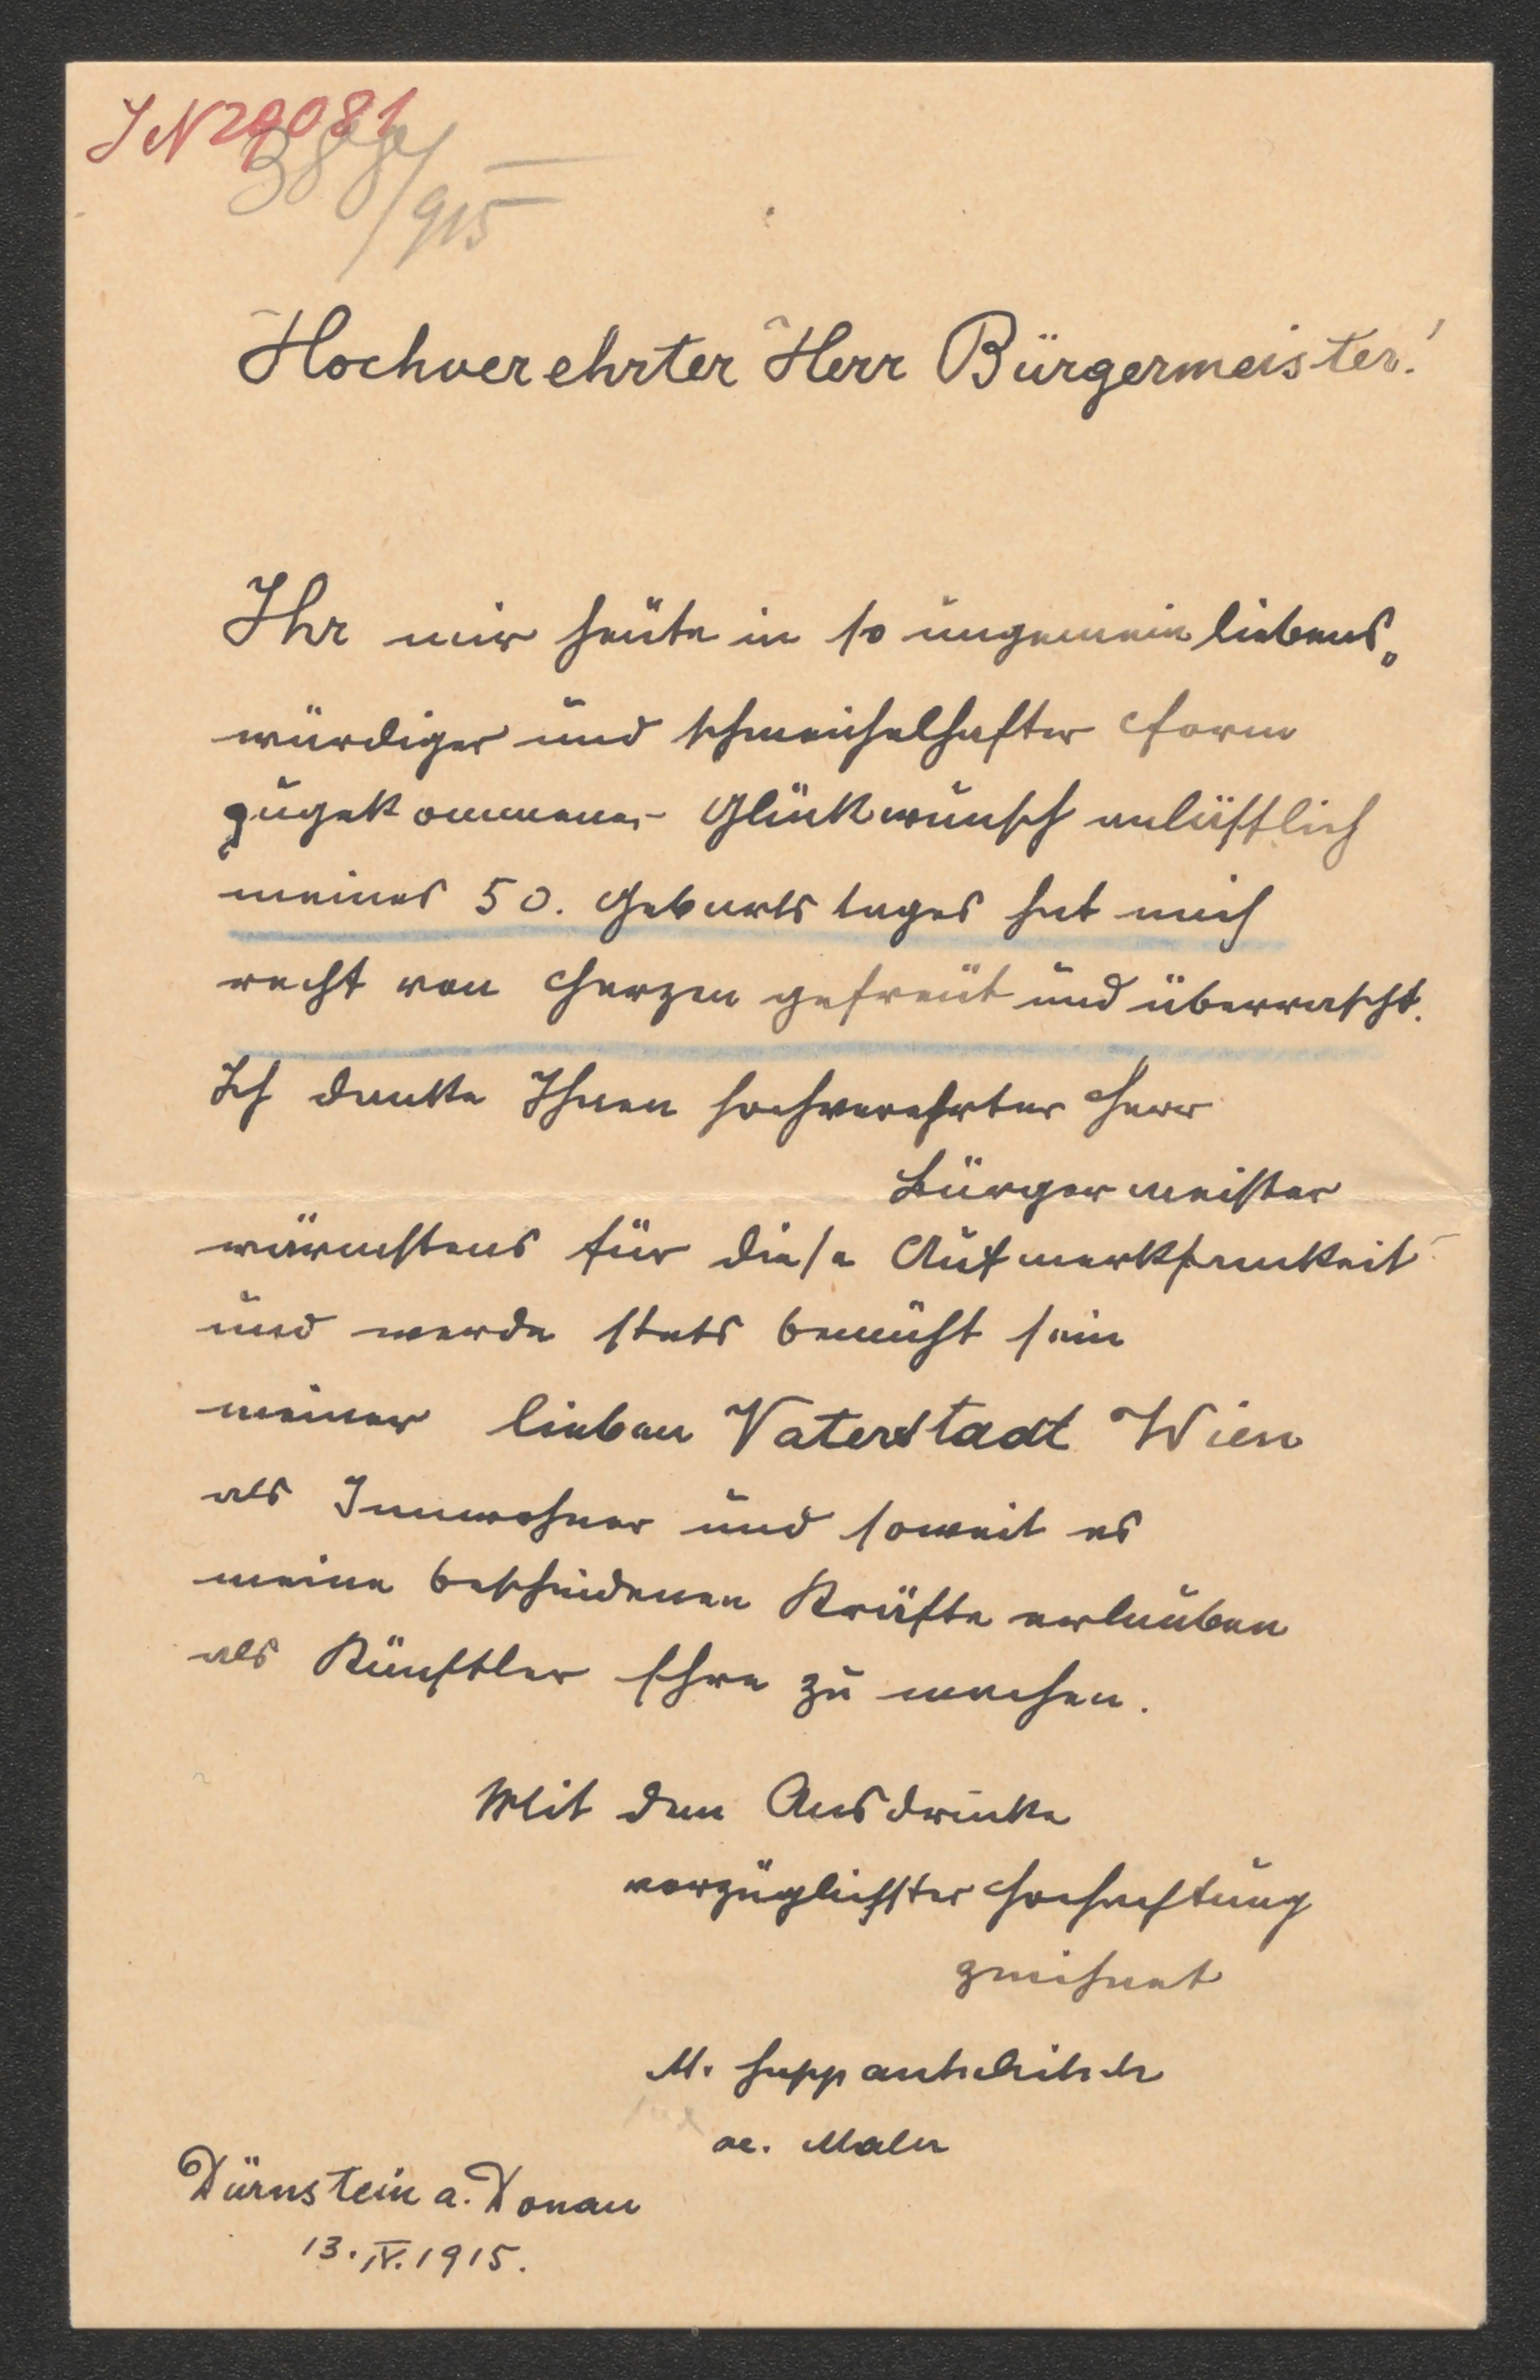 JN 79081
388/915
Hochverehrter Herr Bürgermeister!
Ihr mir heute in so ungemein liebens„
würdiger und schmeichelhafter Form
zugekommener Glückwunsch anläßlich
meines 50. Geburtstages hat mich
recht von Herzen gefreut und überrascht.
Ich danke Ihnen hochverehrter Herr
Bürgermeister
wärmstens für diese Aufmerksamkeit
und werde stets bemüht sein
meiner lieben Vaterstadt Wien
als Innwohner und soweit es
meine bescheidenen Kräfte erlauben
als Künstler Ehre zu machen.
Mit dem Ausdrucke
vorzüglichster Hochachtung
zeichnet
M. Suppantschitsch
ac. Maler
Dürnstein a. Donau
13. IV. 1915.